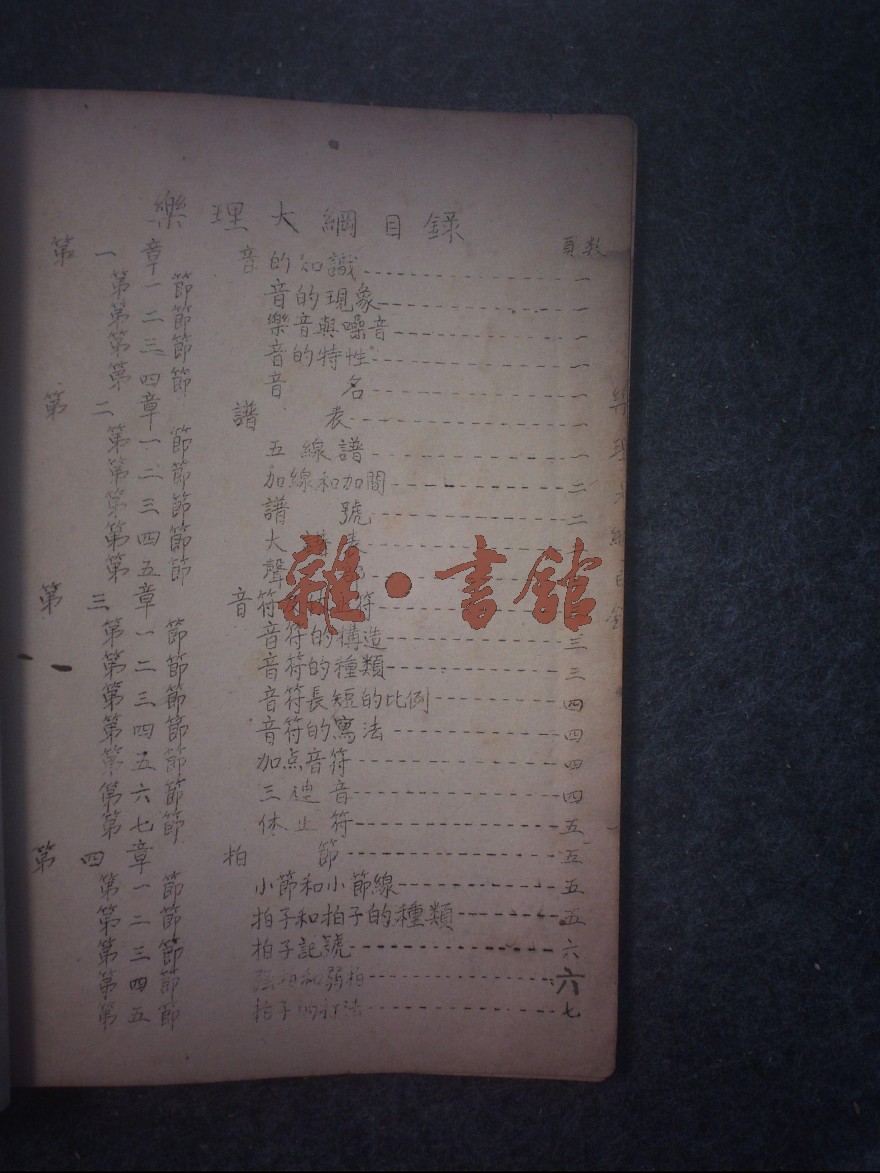 樂理大綱目錄
頁數
第一章 音的知識 一
第一節 音的現象 一
第二節 樂音與噪音 一
第三節 音的特性 一
第四節 音名 一
第二章 譜表 一
第一節 五線譜 一
第二節 加線和加間 二
第三節 譜號 二
第四節 大譜表
第五節 聲
第三章 音符 符
第一節 音符的構造 三
第二節 音符的種類 三
第三節 音符長短的比例 四
第四節 音符的寫法 四
第五節 加点音符 四
第六節 三連音 四
第七節 休止符 五
第四章 拍節 五
第一節 小節和小節線 五
第二節 拍子和拍子的種類 五
第三節 拍子記號 六
第四節 強拍和弱拍 六
第五節 拍子的打法 七
樂理大綱目錄
一
雜·書館